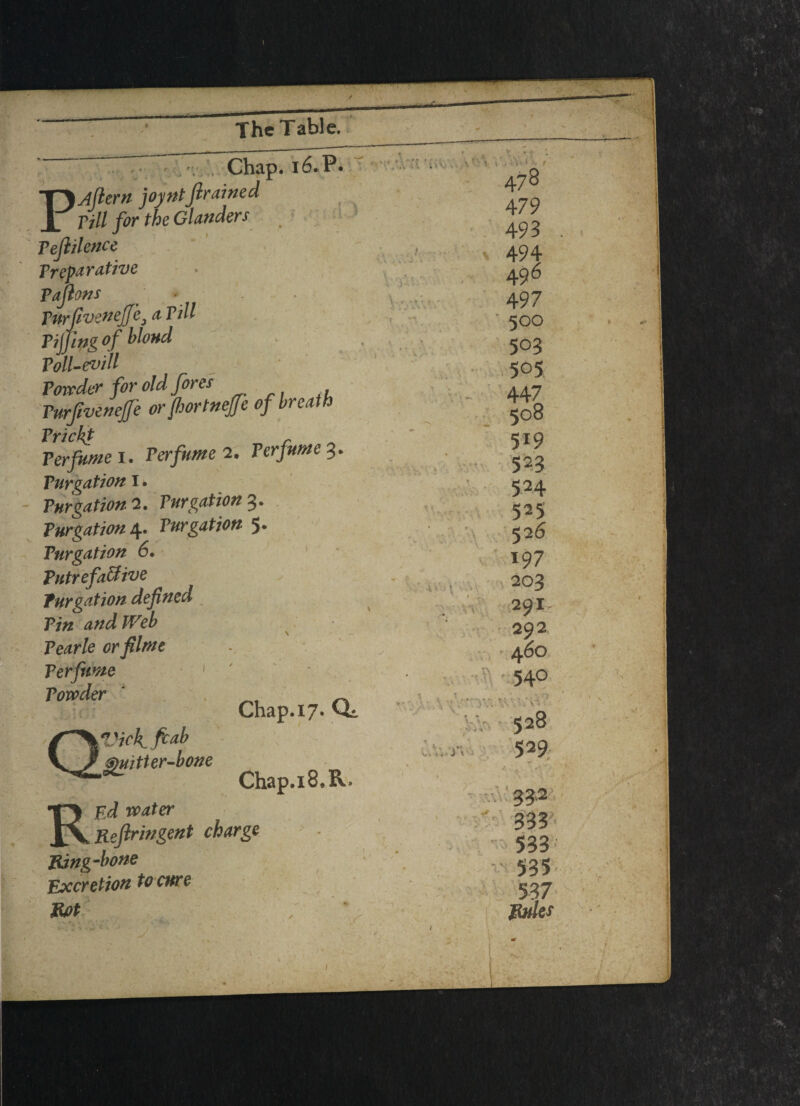 The Table.
Chap. 16. P.
PAſtern joynt ſtrained 478
Pill for the Glanders 479
Peſtilence 493
Preparative 494
Paſtons 496
Purſiveneſſe, a Pill 497
Piſſing of bloud 500
Poll-evill 503
Powder for old ſores 505
Purſiveneſſe or ſhortneſſe of breath 447
Prickt 508
Perfume 1. Perfume 2. Perfume 3. 519
Purgation 1. 523
Purgation 2. Purgation 3. 524
Purgation 4. Purgation 5. 525
Purgation 6. 526
Putrefactive 197
Purgation defined 203
Pin and Web 291
Pearle or filme 292
Perfume 460
Powder 540
Chap. 17. Q.
QVick ſcab 528
Quitter-bone 529
Chap. 18. R.
REd water 332
Reſtringent charge 333
Ring-bone 533
Excretion to cure 535
Rot 537
Rules